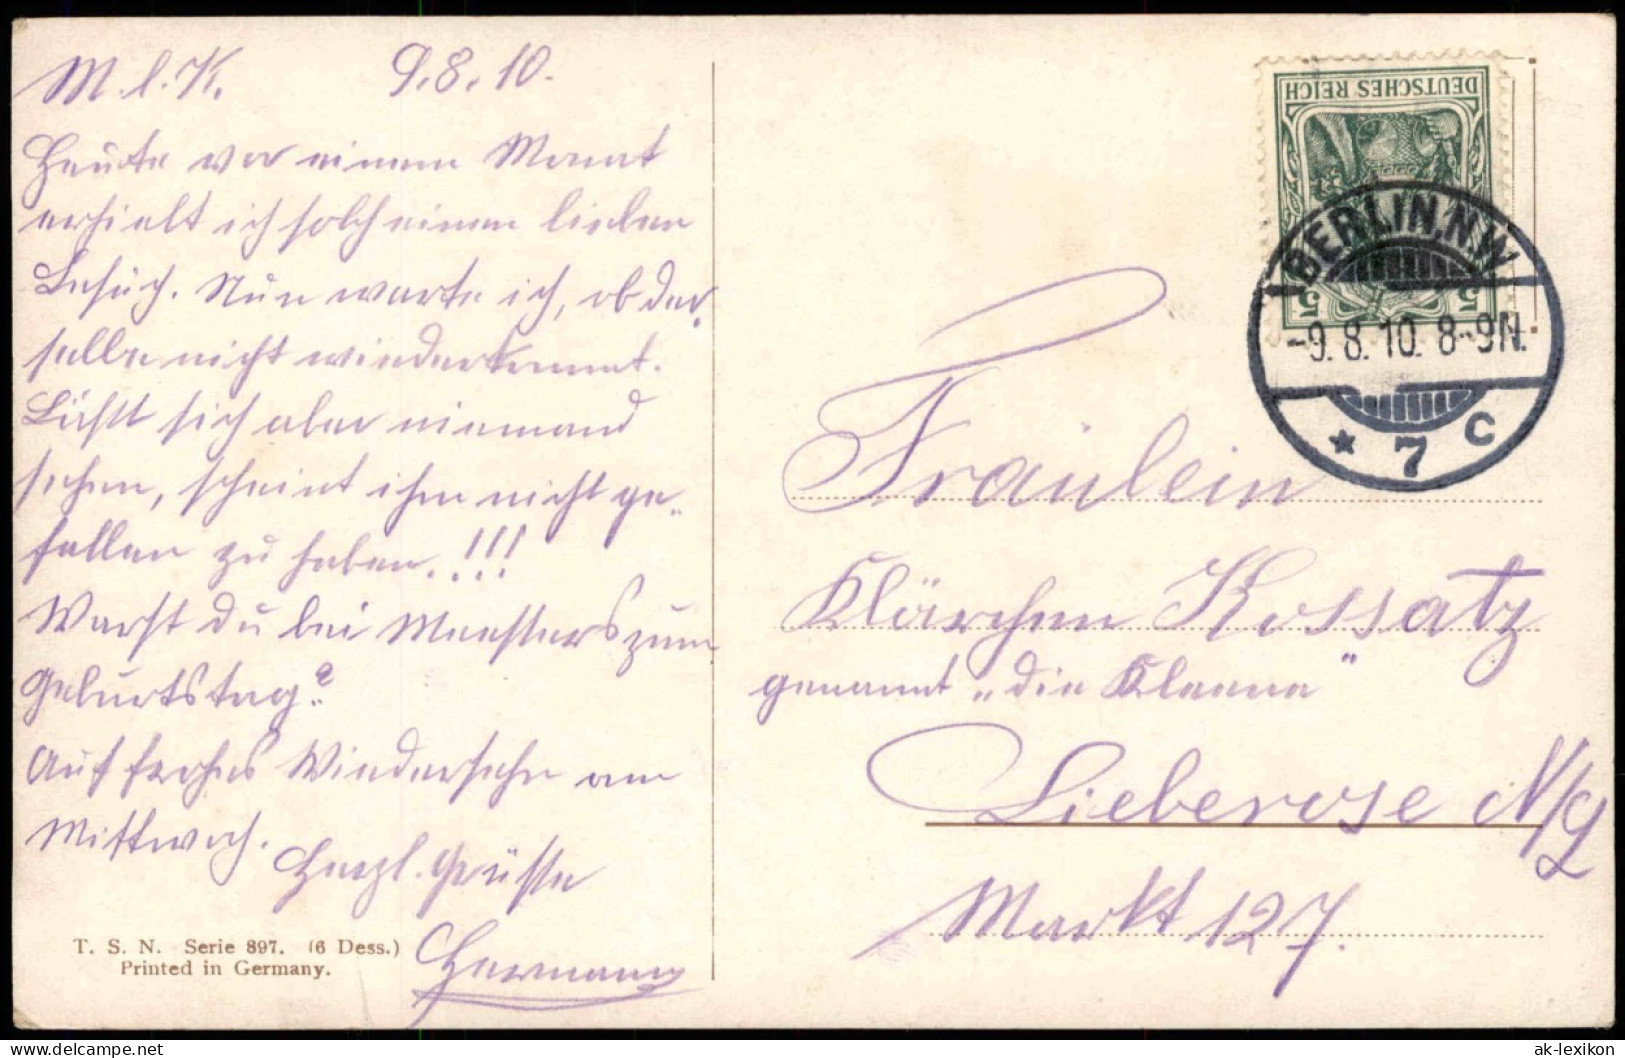 M. l. K. 9.8.10.
Heute vor einem Monat
erhielt ich solch einen lieben
Besuch. Nun warte ich, ob der-
selbe nicht wiederkommt.
Läßt sich aber niemand
sehen, scheint ihm nicht ge-
fallen zu haben.!!!
Warst du bei Meesters zum
Geburtstag?
Auf frohes Wiedersehn am
Mittwoch.
Herzl. Grüsse
Hermann
T. S. N. Serie 897. (6 Dess.)
Printed in Germany.
DEUTSCHES REICH
5 5
BERLIN. N.W.
-9. 8. 10. 8-9N.
* 7 C
Fräulein
Klärchen Kossatz
genannt „die Kleene"
Lieberose N/L
Markt 127.
ak-lexikon.com The World's Largest Collectors Website